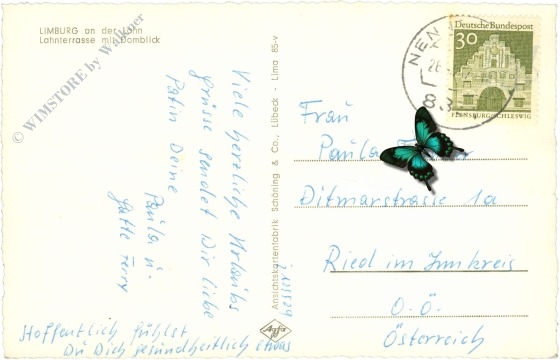 LIMBURG an der Lahn
Lahnterrasse mit Domblick
© WIMSTORE by Walkner
Viele herzliche Urlaubs
grüsse sendet Dir liebe
Patin Deine
Paula u.
Gatte Ferry
Hoffentlich fühlst
Du Dich gesundheitlich etwas
besser!
Ansichtskartenfabrik Schöning & Co., Lübeck - Lima 85-v
Agfa
NEN
8
Deutsche Bundespost
30
FLENSBURG/SCHLESWIG
Frau
Paula
Ditmarstrasse 1a
Ried im Innkreis
O.Ö.
Österreich